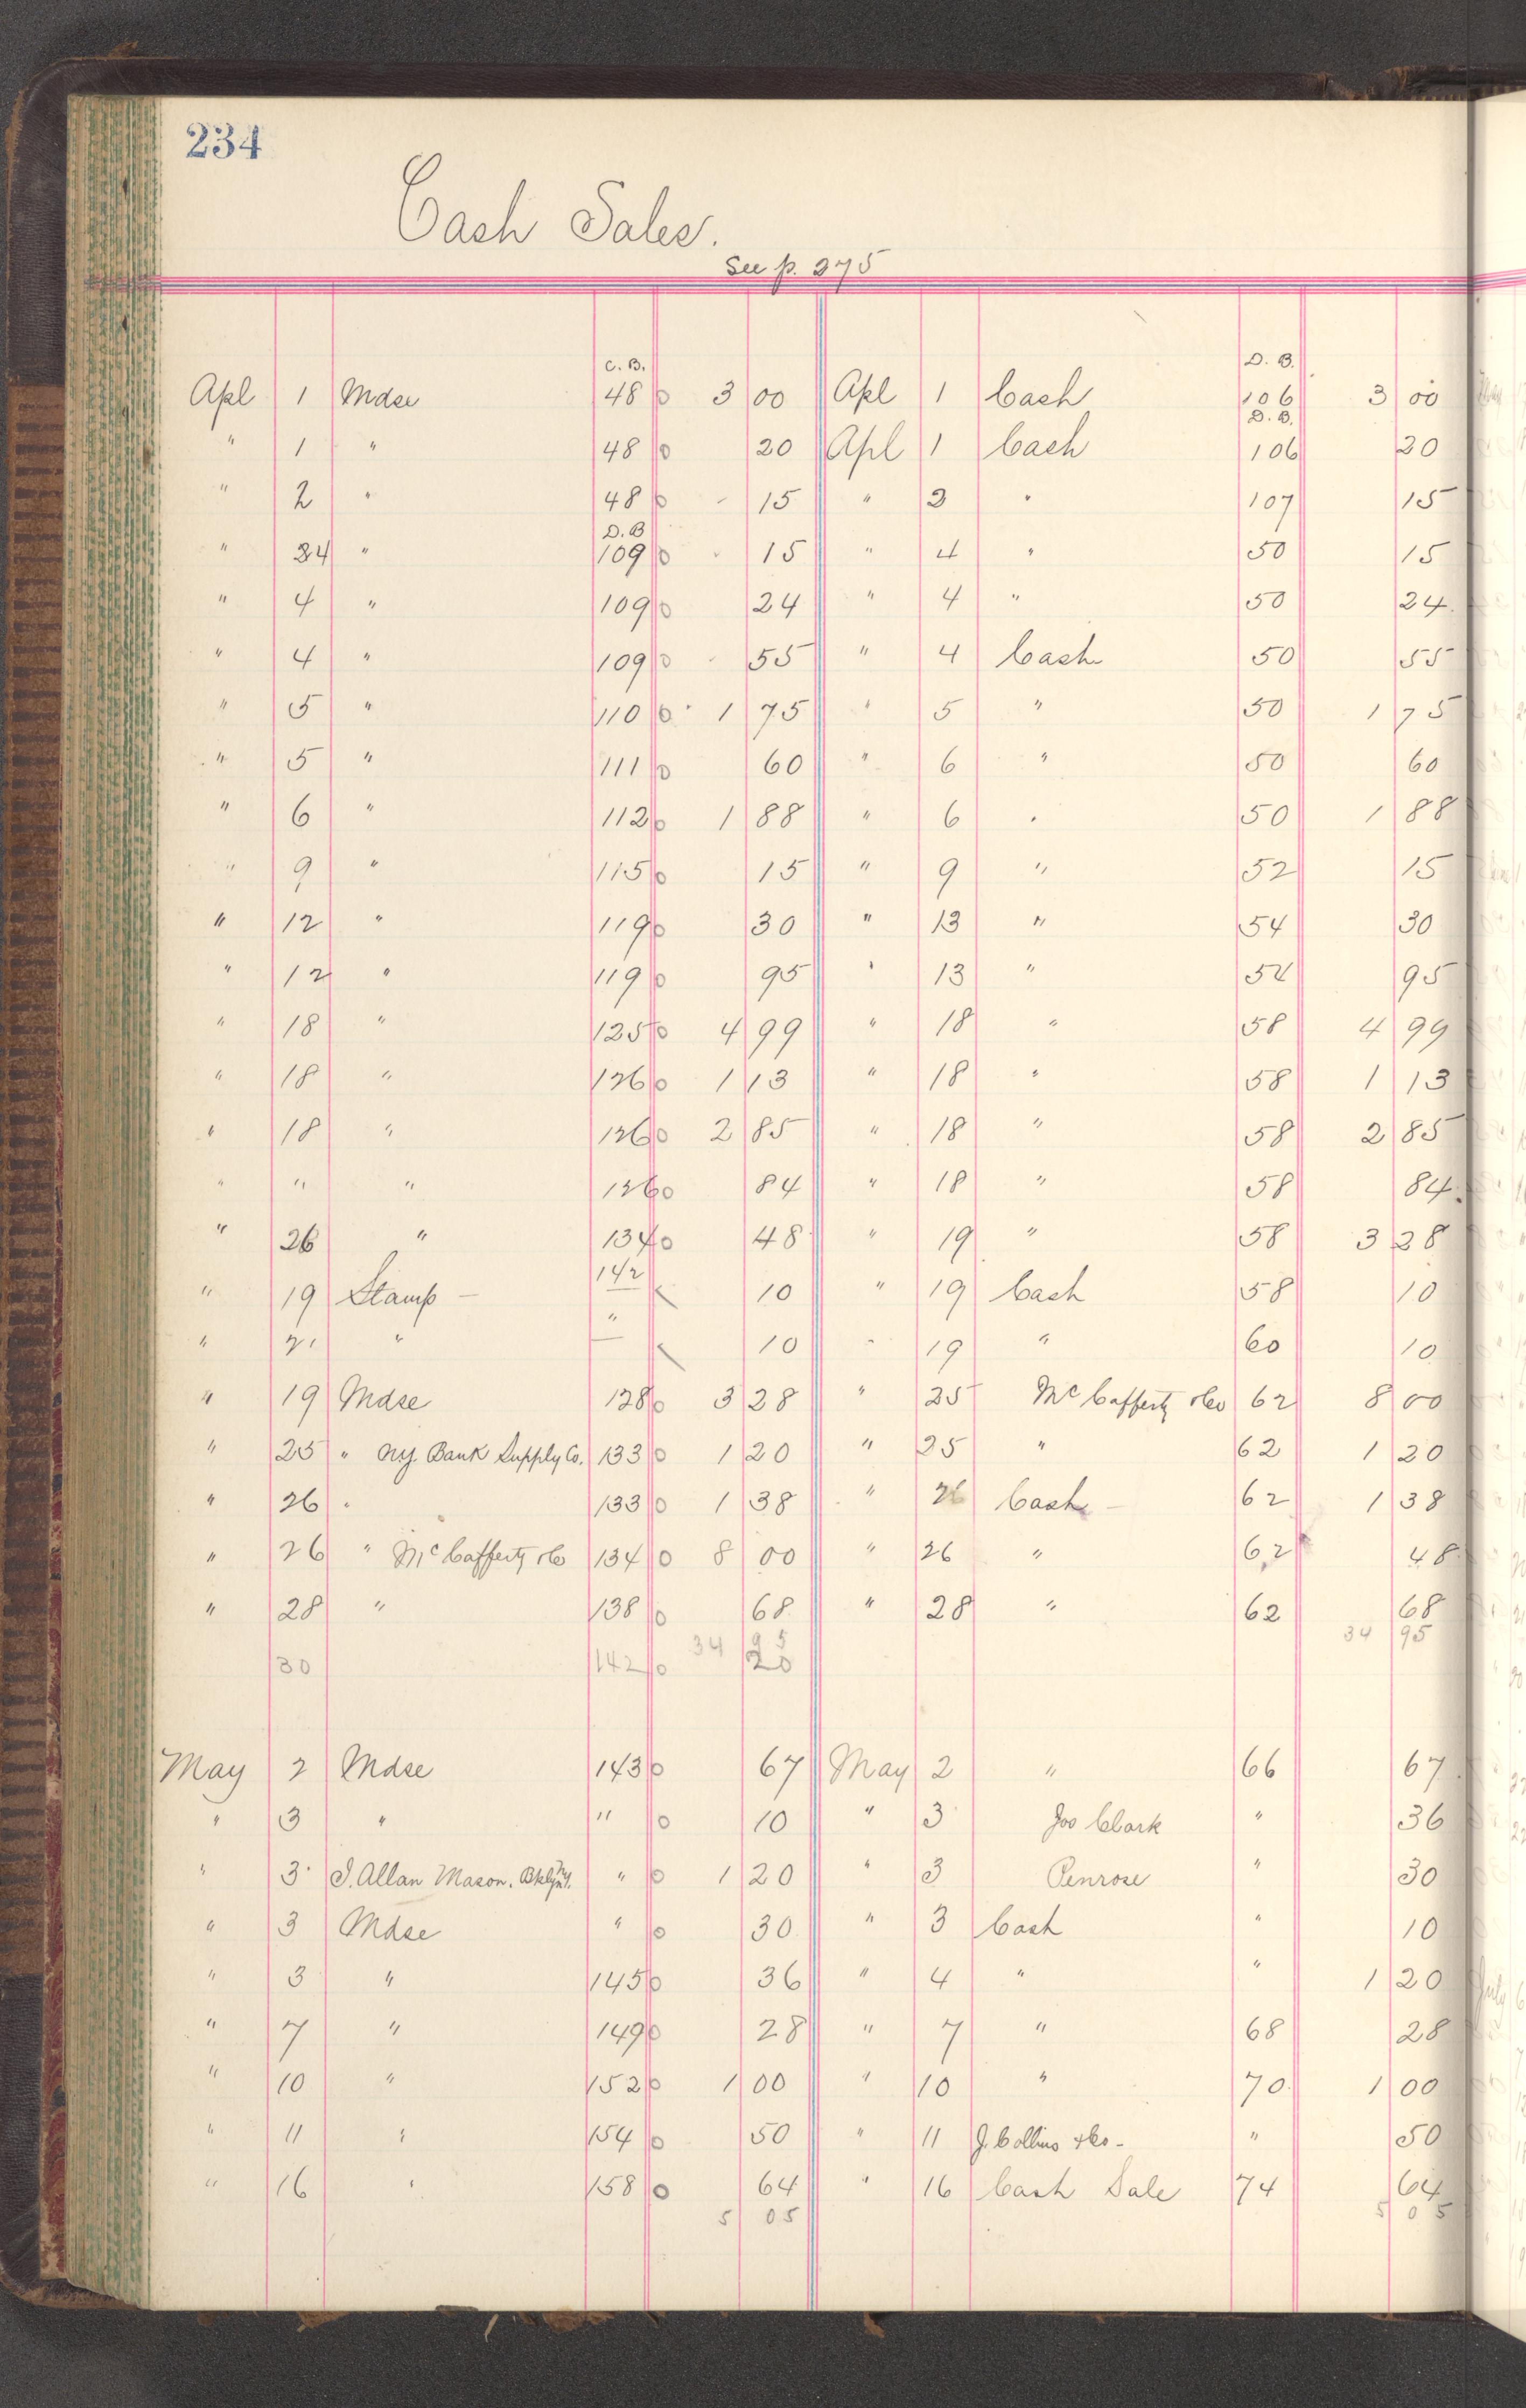 234
Cash Sales.
See p. 275
C. B. D. B.
Apl 1 Mdse 48 0 3 00 Apl 1 Cash 106 3 00
D. B.
" 1 " 48 0 20 Apl 1 Cash 106 20
" 2 " 48 0 15 " 2 " 107 15
D. B
" 24 " 109 0 15 " 4 " 50 15
" 4 " 109 0 24 " 4 " 50 24
" 4 " 109 0 55 " 4 Cash 50 55
" 5 " 110 0 1 75 " 5 " 50 1 75
" 5 " 111 0 60 " 6 " 50 60
" 6 " 112 0 1 88 " 6 " 50 1 88
" 9 " 115 0 15 " 9 " 52 15
" 12 " 119 0 30 " 13 " 54 30
" 12 " 119 0 95 " 13 " 54 95
" 18 " 125 0 4 99 " 18 " 58 4 99
" 18 " 126 0 1 13 " 18 " 58 1 13
" 18 " 126 0 2 85 " 18 " 58 2 85
" " " 126 0 84 " 18 " 58 84
" 26 " 134 0 48 " 19 " 58 3 28
" 19 Stamp — 142 10 " 19 Cash 58 10
" 21 " " 10 " 19 " 60 10
" 19 Mdse 128 0 3 28 " 25 McCafferty & Co 62 8 00
" 25 " NY. Bank Supply Co. 133 0 1 20 " 25 " 62 1 20
" 26 " 133 0 1 38 " 26 Cash — 62 1 38
" 26 " McCafferty & Co 134 0 8 00 " 26 " 62 48
" 28 " 138 0 68 " 28 " 62 68
34 95 34 95
30 142 0 20
May 2 Mdse 143 0 67 May 2 " 66 67
" 3 " " 0 10 " 3 Jos Clark " 36
" 3 I. Allan Mason. Bklyn NY. " 0 1 20 " 3 Penrose " 30
" 3 Mdse " 0 30 " 3 Cash " 10
" 3 " 145 0 36 " 4 " " 1 20
" 7 " 149 0 28 " 7 " 68 28
" 10 " 152 0 1 00 " 10 " 70 1 00
" 11 " 154 0 50 " 11 J. Collins & Co — " 50
" 16 " 158 0 64 " 16 Cash Sale 74 64
5 05 5 05